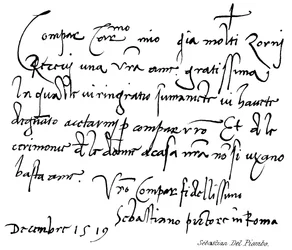 Compar Car^mo mio gia molti Zorni
Recevi una vra ame gratissima
In qualle vi ringratio sumamete vi havete
degnato acetarmi p compar vro Et de le
cerimonie de le donne a casa nra no si uzano
basta ame.
Vro Compar fidellissimo
Sebastiano pictore in Roma
Decembre 1519
Sebastian Del Piombo.